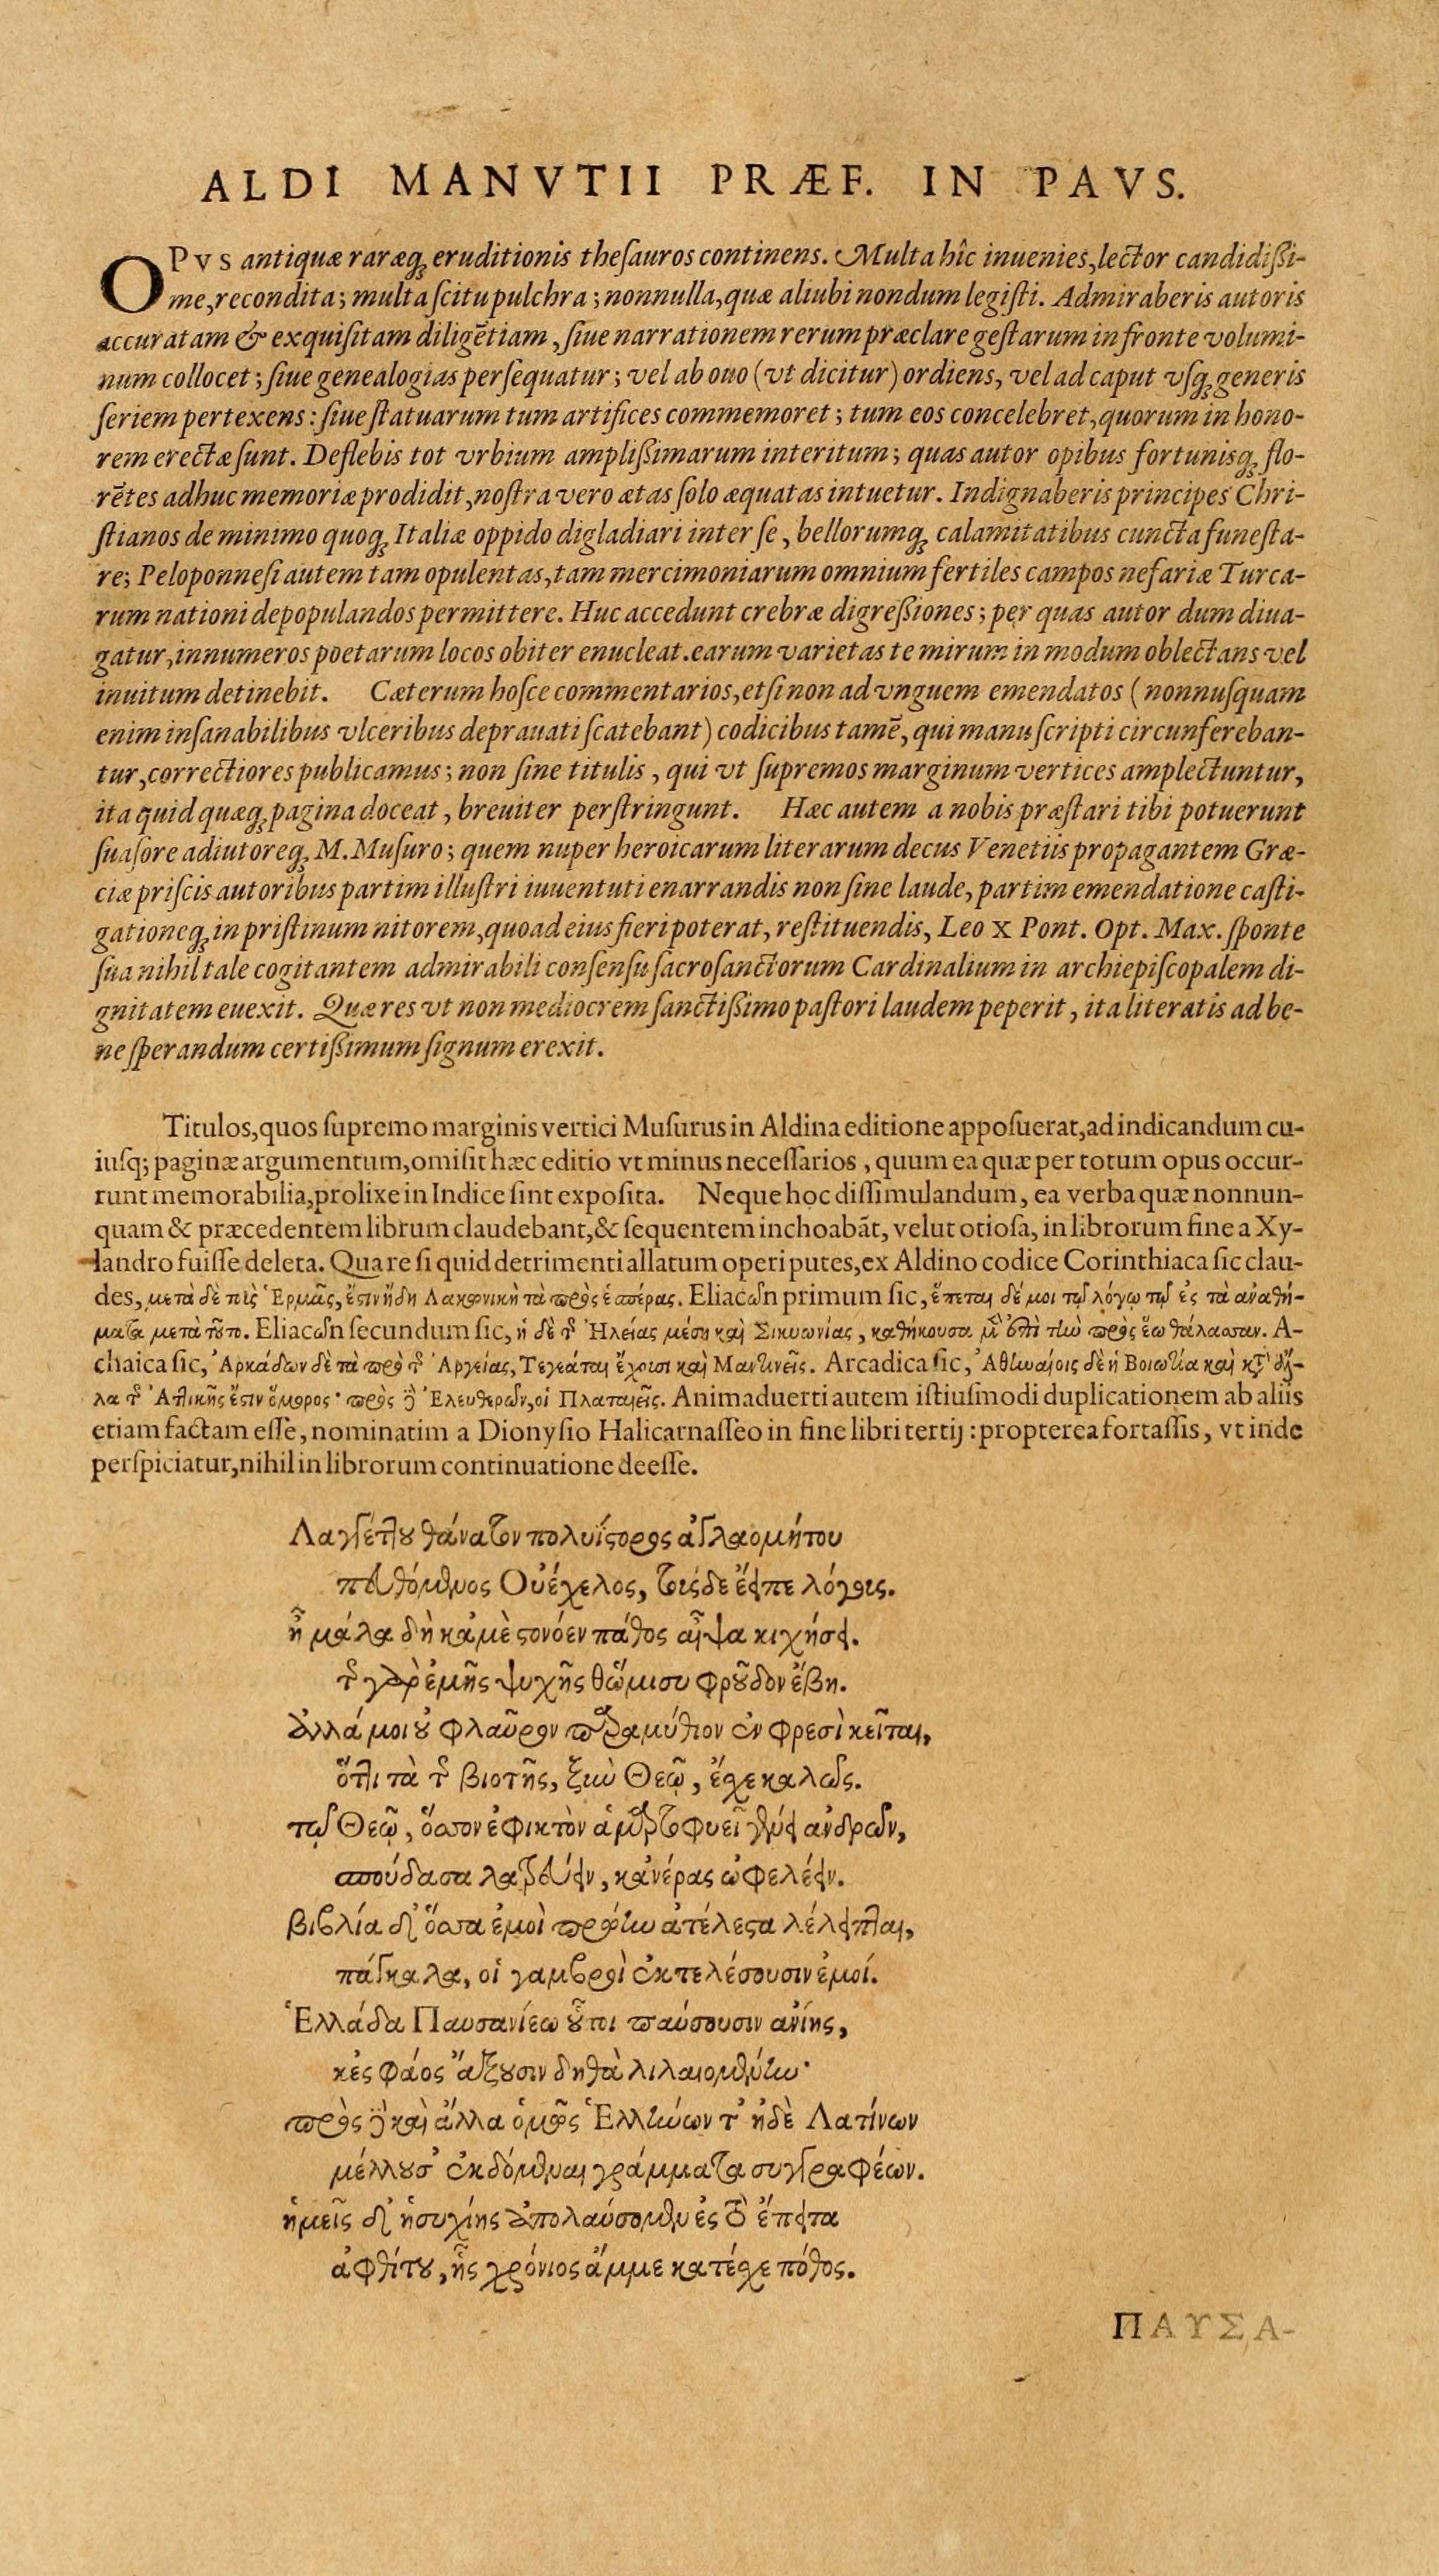 ALDI MANVTII PRÆF. IN PAVS.
OPVS antiquæ raræq; eruditionis theſauros continens. Multa hîc inuenies, lector candidiſsi-
me, recondita; multa ſcitu pulchra; nonnulla, quæ aliubi nondum legiſti. Admiraberis autoris
accuratam & exquiſitam diligẽtiam, ſiue narrationem rerum præclare geſtarum in fronte volumi-
num collocet; ſiue genealogias perſequatur; vel ab ouo (vt dicitur) ordiens, vel ad caput vſq; generis
ſeriem pertexens: ſiue ſtatuarum tum artifices commemoret; tum eos concelebret, quorum in hono-
rem erectæ ſunt. Deflebis tot vrbium ampliſsimarum interitum; quas autor opibus fortunisq; flo-
rẽtes adhuc memoriæ prodidit, noſtra vero ætas ſolo æquatas intuetur. Indignaberis principes Chri-
ſtianos de minimo quoq; Italiæ oppido digladiari inter ſe, bellorumq; calamitatibus cuncta funeſta-
re; Peloponneſi autem tam opulentas, tam mercimoniarum omnium fertiles campos nefariæ Turca-
rum nationi depopulandos permittere. Huc accedunt crebræ digreſsiones; per quas autor dum diua-
gatur, innumeros poetarum locos obiter enucleat. earum varietas te mirum in modum oblectans vel
inuitum detinebit. Cæterum hoſce commentarios, etſi non ad vnguem emendatos (nonnuſquam
enim inſanabilibus vlceribus deprauati ſcatebant) codicibus tamẽ, qui manuſcripti circunfereban-
tur, correctiores publicamus; non ſine titulis, qui vt ſupremos marginum vertices amplectuntur,
ita quid quæq; pagina doceat, breuiter perſtringunt. Hæc autem a nobis præſtari tibi potuerunt
ſuaſore adiutoreq; M. Muſuro; quem nuper heroicarum literarum decus Venetiis propagantem Græ-
ciæ priſcis autoribus partim illuſtri iuuentuti enarrandis non ſine laude, partim emendatione caſti-
gationeq; in priſtinum nitorem, quoad eius fieri poterat, reſtituendis, Leo X Pont. Opt. Max. ſponte
ſua nihil tale cogitantem admirabili conſenſu ſacroſanctorum Cardinalium in archiepiſcopalem di-
gnitatem euexit. Quæ res vt non mediocrem ſanctiſsimo paſtori laudem peperit, ita literatis ad be-
ne ſperandum certiſsimum ſignum erexit.
Titulos, quos ſupremo marginis vertici Muſurus in Aldina editione appoſuerat, ad indicandum cu-
iuſq; paginæ argumentum, omiſit hæc editio vt minus neceſſarios, quum ea quæ per totum opus occur-
runt memorabilia, prolixe in Indice ſint expoſita. Neque hoc diſſimulandum, ea verba quæ nonnun-
quam & præcedentem librum claudebant, & ſequentem inchoabãt, velut otioſa, in librorum fine a Xy-
landro fuiſſe deleta. Quare ſi quid detrimenti allatum operi putes, ex Aldino codice Corinthiaca ſic clau-
des, μετὰ δὲ τοὺς Ἑρμᾶς, ἔστιν ἤδη Λακωνικὴ τὰ πρὸς ἑσπέρας. Eliacῶn primum ſic, ἕπεται δέ μοι τῷ λόγῳ τῷ ἐς τὰ ἀναθή-
ματα μετὰ τοῦτο. Eliacῶn ſecundum ſic, ἡ δὲ τῆς Ἠλείας μέση καὶ Σικυωνίας, καθήκουσα μὲν ἐπὶ τὴν πρὸς ἕω θάλασσαν. A-
chaica ſic, Ἀρκάδων δὲ τὰ πρὸς τῆς Ἀργείας, Τεγεάται ἔχουσι καὶ Μαντινεῖς. Arcadica ſic, Ἀθηναίοις δὲ ἡ Βοιωτία καὶ κατ' ἄλ-
λα τῆς Ἀττικῆς ἐστιν ὅμορος· πρὸς δὲ Ἐλευθερῶν, οἱ Πλαταιεῖς. Animaduerti autem iſtiuſmodi duplicationem ab aliis
etiam factam eſſe, nominatim a Dionyſio Halicarnaſſeo in fine libri tertij: propterea fortaſſis, vt inde
perſpiciatur, nihil in librorum continuatione deeſſe.
Λαγγέτου θάνατον πολυΐστορος ἀγλαομήτου
πευθόμενος Οὐέχελος, τοῖσδε ἔειπε λόγοις.
ἦ μάλα δὴ κᾀμὲ στονόεν πάθος αἶψα κιχήσει.
τῆς γὰρ ἐμῆς ψυχῆς θὤμισυ φροῦδον ἔβη.
ἀλλά μοι οὐ φλαῦρον παραμύθιον ἐν φρεσὶ κεῖται,
ὅττι τὰ τῆς βιοτῆς, ξὺν Θεῷ, ἔσχε καλῶς.
τῷ Θεῷ, ὅσσον ἐφικτὸν ἁμαρτοφυεῖ γένει ἀνδρῶν,
σπούδασα λατρεύειν, κᾀνέρας ὠφελέειν.
βιβλία δ' ὅσσα ἐμοὶ πρῴην ἀτέλεστα λέλειπται,
πάγκαλα, οἱ γαμβροὶ ἐκτελέσουσιν ἐμοί.
Ἑλλάδα Παυσανίεω οὗτοι παύσουσιν ἀνίης,
κἐς φάος ἄξουσιν δηθὰ λιλαιομένην·
πρὸς δὲ καὶ ἄλλα ὁμῶς Ἑλλήνων τ' ἠδὲ Λατίνων
μέλλουσ' ἐκδόμεναι γράμματα συγγραφέων.
ἡμεῖς δ' ἡσυχίης ἀπολαύσομεν ἐς τὸ ἔπειτα
ἀφθίτου, ἧς χρόνιος ἄμμε κατέσχε πόθος.
ΠΑΥΣΑ-